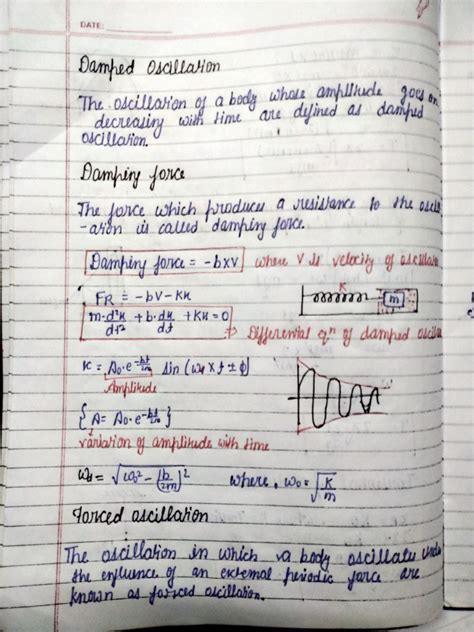 DATE:
Damped Oscillation
The oscillation of a body whose amplitude goes on
decreasing with time are defined as damped
oscillation.
Damping force
The force which produces a resistance to the oscill
-ation is called damping force.
Damping force = -bxv where V is velocity of oscillation
FR = -bV-Kx
K
m
m·d²x/dt² + b·dx/dt + Kx = 0
Differential qⁿ of damped oscilla
x = A₀·e^-bt/2m sin (ωd x t ± φ)
Amplitude
{A = A₀·e^-bt/2m}
variation of amplitude with time
ωd = √ω₀² - (b/2m)² where, ω₀ = √K/m
Forced oscillation
The oscillation in which a body oscillate under
the influence of an external periodic force are
known as forced oscillation.